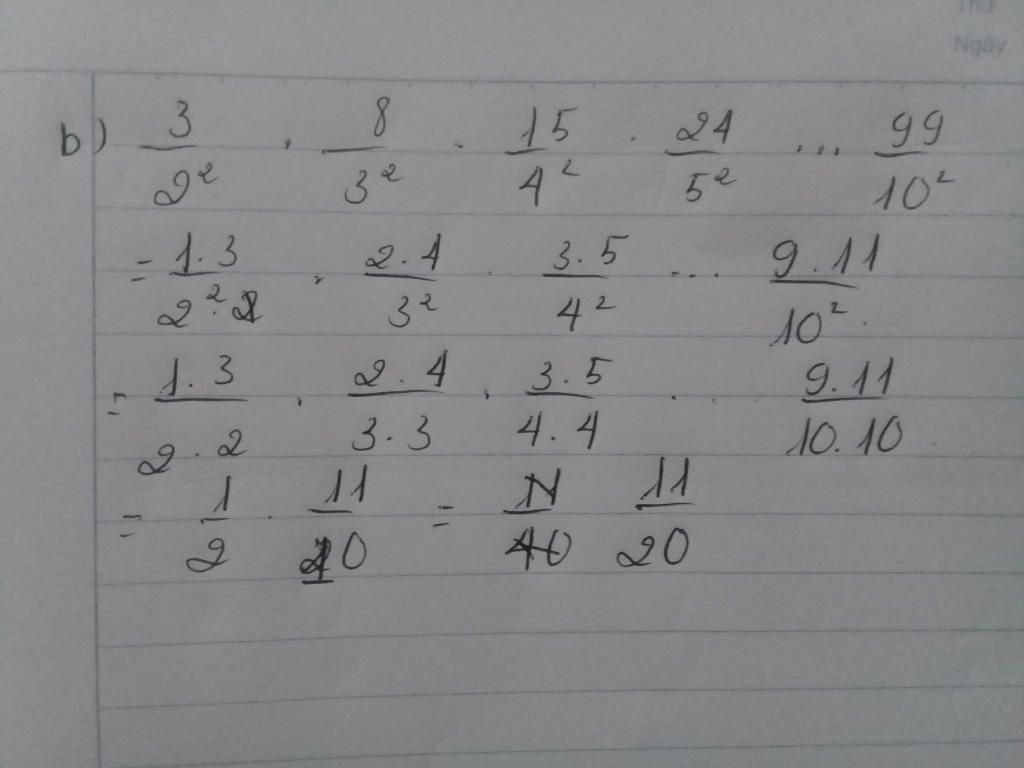 Thứ
Ngày
b) 3/2² . 8/3² . 15/4² . 24/5² ... 99/10²
= 1.3/2² . 2.4/3² . 3.5/4² ... 9.11/10²
= 1.3/2.2 . 2.4/3.3 . 3.5/4.4 . . 9.11/10.10
= 1/2 . 11/10 = 11/20